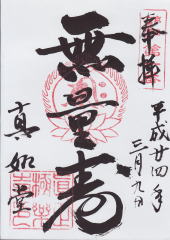 奉拝
平成廿四年
三月九日
無量寿
真如堂